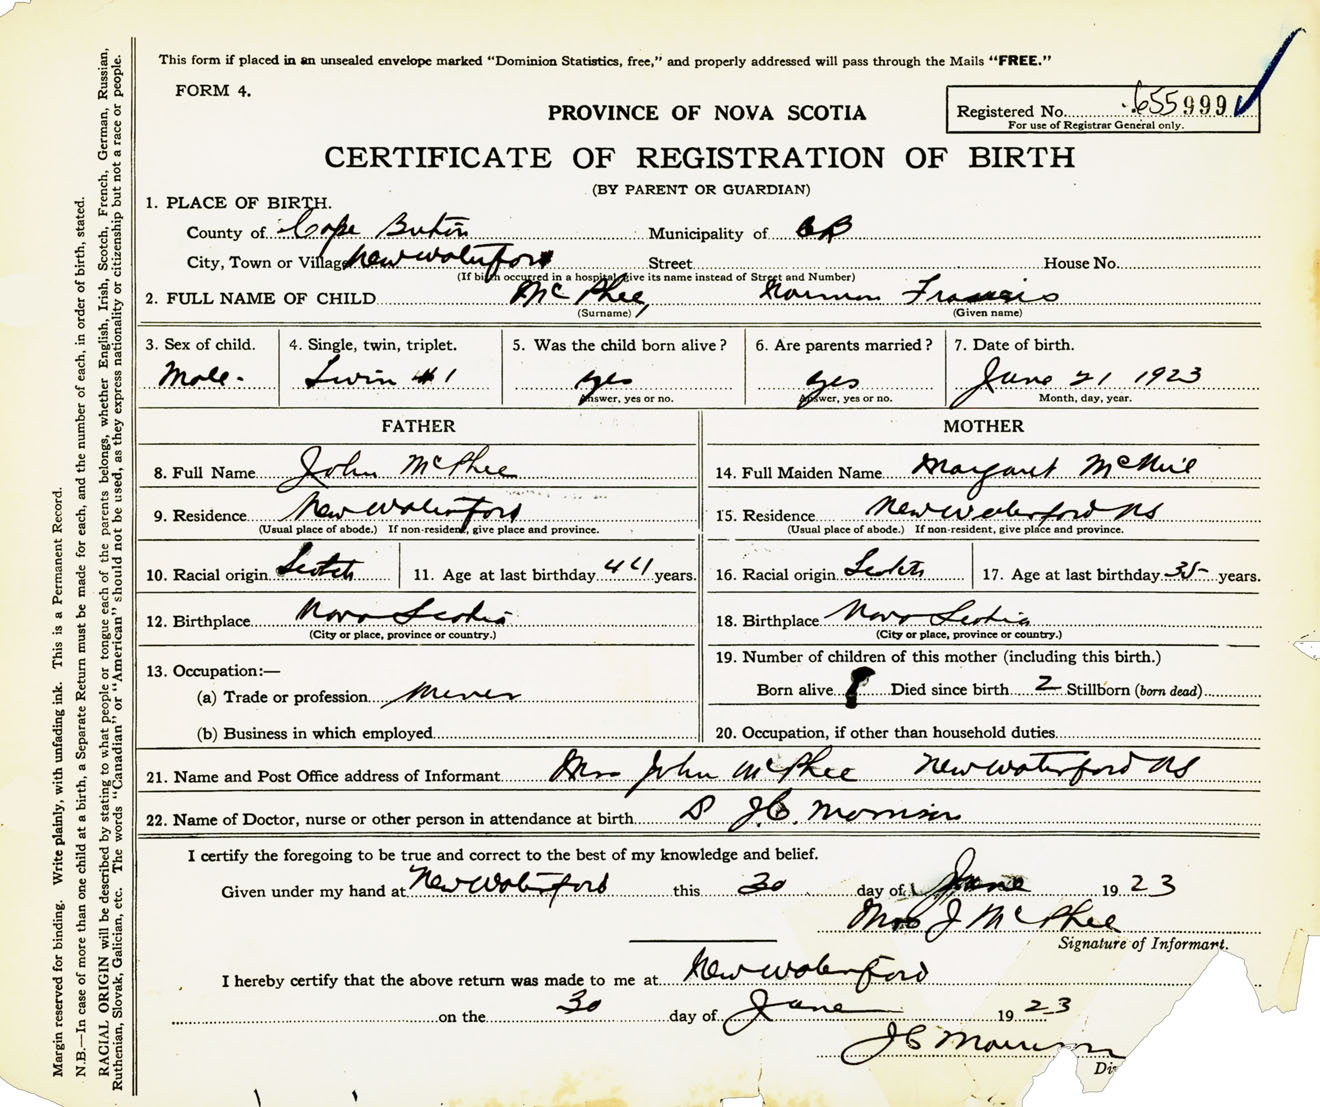 This form if placed in an unsealed envelope marked "Dominion Statistics, free," and properly addressed will pass through the Mails "FREE."
FORM 4.
PROVINCE OF NOVA SCOTIA
Registered No. 655999
For use of Registrar General only.
CERTIFICATE OF REGISTRATION OF BIRTH
(BY PARENT OR GUARDIAN)
1. PLACE OF BIRTH.
County of Cape Breton Municipality of CB
City, Town or Village New Waterford Street House No.
(If birth occurred in a hospital give its name instead of Street and Number)
2. FULL NAME OF CHILD McPhee, Norman Francis
(Surname) (Given name)
3. Sex of child. 4. Single, twin, triplet. 5. Was the child born alive? 6. Are parents married? 7. Date of birth.
Male. Twin #1 yes yes June 21 1923
Answer, yes or no. Answer, yes or no. Month, day, year.
FATHER MOTHER
8. Full Name John McPhee 14. Full Maiden Name Margaret McNeil
9. Residence New Waterford 15. Residence New Waterford NS
(Usual place of abode.) If non-resident, give place and province. (Usual place of abode.) If non-resident, give place and province.
10. Racial origin Scotch 11. Age at last birthday 44 years. 16. Racial origin Scotch 17. Age at last birthday 35 years.
12. Birthplace Nova Scotia 18. Birthplace Nova Scotia
(City or place, province or country.) (City or place, province or country.)
13. Occupation:— 19. Number of children of this mother (including this birth.)
(a) Trade or profession Miner Born alive Died since birth 2 Stillborn (born dead)
(b) Business in which employed 20. Occupation, if other than household duties
21. Name and Post Office address of Informant Mrs John McPhee New Waterford NS
22. Name of Doctor, nurse or other person in attendance at birth J.C. Morrison
I certify the foregoing to be true and correct to the best of my knowledge and belief.
Given under my hand at New Waterford this 30 day of June 1923
Mrs J McPhee
Signature of Informant.
I hereby certify that the above return was made to me at New Waterford
on the 30 day of June 1923
JC Morrison
Margin reserved for binding. Write plainly, with unfading ink. This is a Permanent Record.
N.B.—In case of more than one child at a birth, a Separate Return must be made for each, and the number of each, in order of birth, stated.
RACIAL ORIGIN will be described by stating to what people or tongue each of the parents belongs, whether English, Irish, Scotch, French, German, Russian,
Ruthenian, Slovak, Galician, etc. The words "Canadian" or "American" should not be used, as they express nationality or citizenship but not a race or people.